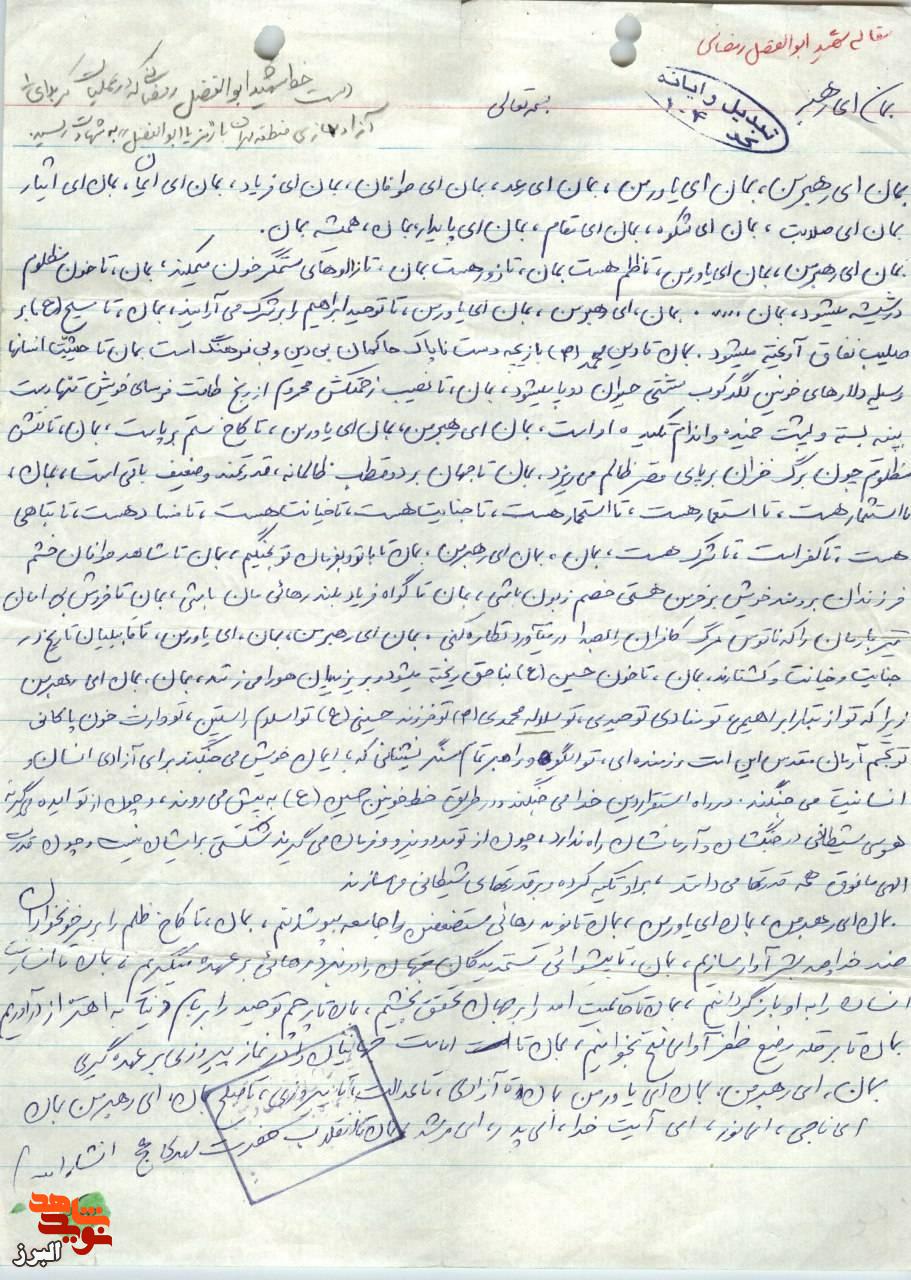 مقاله شهید ابوالفضل رمضانی
دست خط شهید ابوالفضل رمضانی که در عملیات کربلای ۱
آزادسازی منطقه مهران با رمز یا ابوالفضل به شهادت رسید.
بمان ای رهبر
بسمه تعالی
تبدیل رایانه
۱۰۴
بمان ای رهبر من، بمان ای یاور من، بمان ای رعد، بمان ای طوفان، بمان ای فریاد، بمان ای ایمان، بمان ای ایثار
بمان ای صلابت، بمان ای شکوه، بمان ای مقام، بمان ای پایدار، بمان، همیشه بمان.
بمان ای رهبر من، بمان ای یاور من، تا ظلم هست بمان، تا زور هست بمان، تا زالوهای ستمگر خون میمکند، بمان، تا خون مظلوم
در شیشه میشود، بمان .... بمان، ای رهبر من، بمان ای یاور من، تا توحید ابراهیم را بر شرک می آرایند، بمان، تا مسیح (ع) بر
صلیب نفاق آویخته میشود. بمان تا دین محمد (ص) بازیچه دست ناپاک حاکمان بی دین و بی فرهنگ است بمان تا حیثیت انسانها
وسیله دلارهای خونین لگدکوب مشتی حیوان دوپا میشود، بمان، تا نصیب زحمتکش محروم از رنج طاقت فرسای خویش تنها دست
پینه بسته و پشت خمیده و اندام تکیده او است، بمان ای رهبر من، بمان ای یاور من، تا کاخ ستم برپاست، بمان، تا نقش
مظلوم چون برگ خزان بر پای قصر ظالم می ریزد. بمان تا جهان بر دو قطب ظالمانه، قدرتمند و ضعیف باقی است، بمان،
تا استثمار هست، تا استعمار هست، تا استحمار هست، تا جنایت هست، تا خیانت هست، تا فساد هست، تا تباهی
هست، تا کفر است، تا شرک هست، بمان. بمان ای رهبر من، بمان تا با تو و بفرمان تو بجنگیم، بمان تا شاهد طوفان خشم
فرزندان برومند خویش بر خرمن هستی خصم زبون باشی، بمان تا گواه فریاد بلند رهائی مان باشی، بمان تا خروش بی امان
تیر بارمان را که ناقوس مرگ کافران را بصدا در میآورد نظاره کنی. بمان ای رهبر من، بمان، ای یاور من، تا قابیلیان تاریخ در
جنایت و خیانت و کشتارند، بمان، تا خون حسین (ع) بناحق ریخته میشود و بر یزیدیان هورا می زنند، بمان، بمان ای رهبر من
زیرا که تو از تبار ابراهیمی، تو منادی توحیدی، تو سلاله محمدی (ص) تو فرزند حسینی (ع) تو اسلام راستین، تو وارث خون پاکانی
تو تجسم آرمان مقدس این امت رزمنده ای، تو الگو و راهبر تمام سنگرنشینانی که با ایمان خویش می جنگند برای آزادی انسان و
انسانیت می جنگند. در راه استقرار دین خدا می جنگند و در طریق خط خونین حسین (ع) به پیش می روند، و چون از تو ایده می گیرند
هوس شیطانی در جنگشان و آرمانشان راه ندارد، چون از تو مدد و نیرو و فرمان می گیرند شکستی برایشان نیست و چون قدرت
الهی مافوق همه قدرتها می دانند، بر او تکیه کرده و بر قدرتهای شیطانی می تازند
بمان ای رهبر من، بمان ای یاور من، بمان تا نوید رهائی مستضعفین را جامه بپوشانیم، بمان، تا کاخ ظلم را بر سر خونخواران
ضد خدا و ضد بشر آوار سازیم، بمان، تا پیشوائی ستمدیدگان جهان را در نبرد رهائی بر عهده میگیریم، بمان تا انسانیت
انسان را به او بازگردانیم، بمان تا حاکمیت الله را بر جهان تحقق بخشیم، بمان تا پرچم توحید را بر بام دنیا به اهتزاز درآوریم
بمان تا بر قله رفیع ظفر آوای فتح بخوانیم، بمان تا امامت جهانیان را در نماز پیروزی بر عهده گیری
بمان، ای رهبر من، بمان ای یاور من بمان تا آزادی، تا عدالت، تا پیروزی، بمان، ای رهبر من بمان
ای ناجی، ای نور، ای آیت خدا، ای پدر، ای مرشد بمان تا انقلاب حضرت مهدی عج انشاءالله
نوید شاهد
البرز